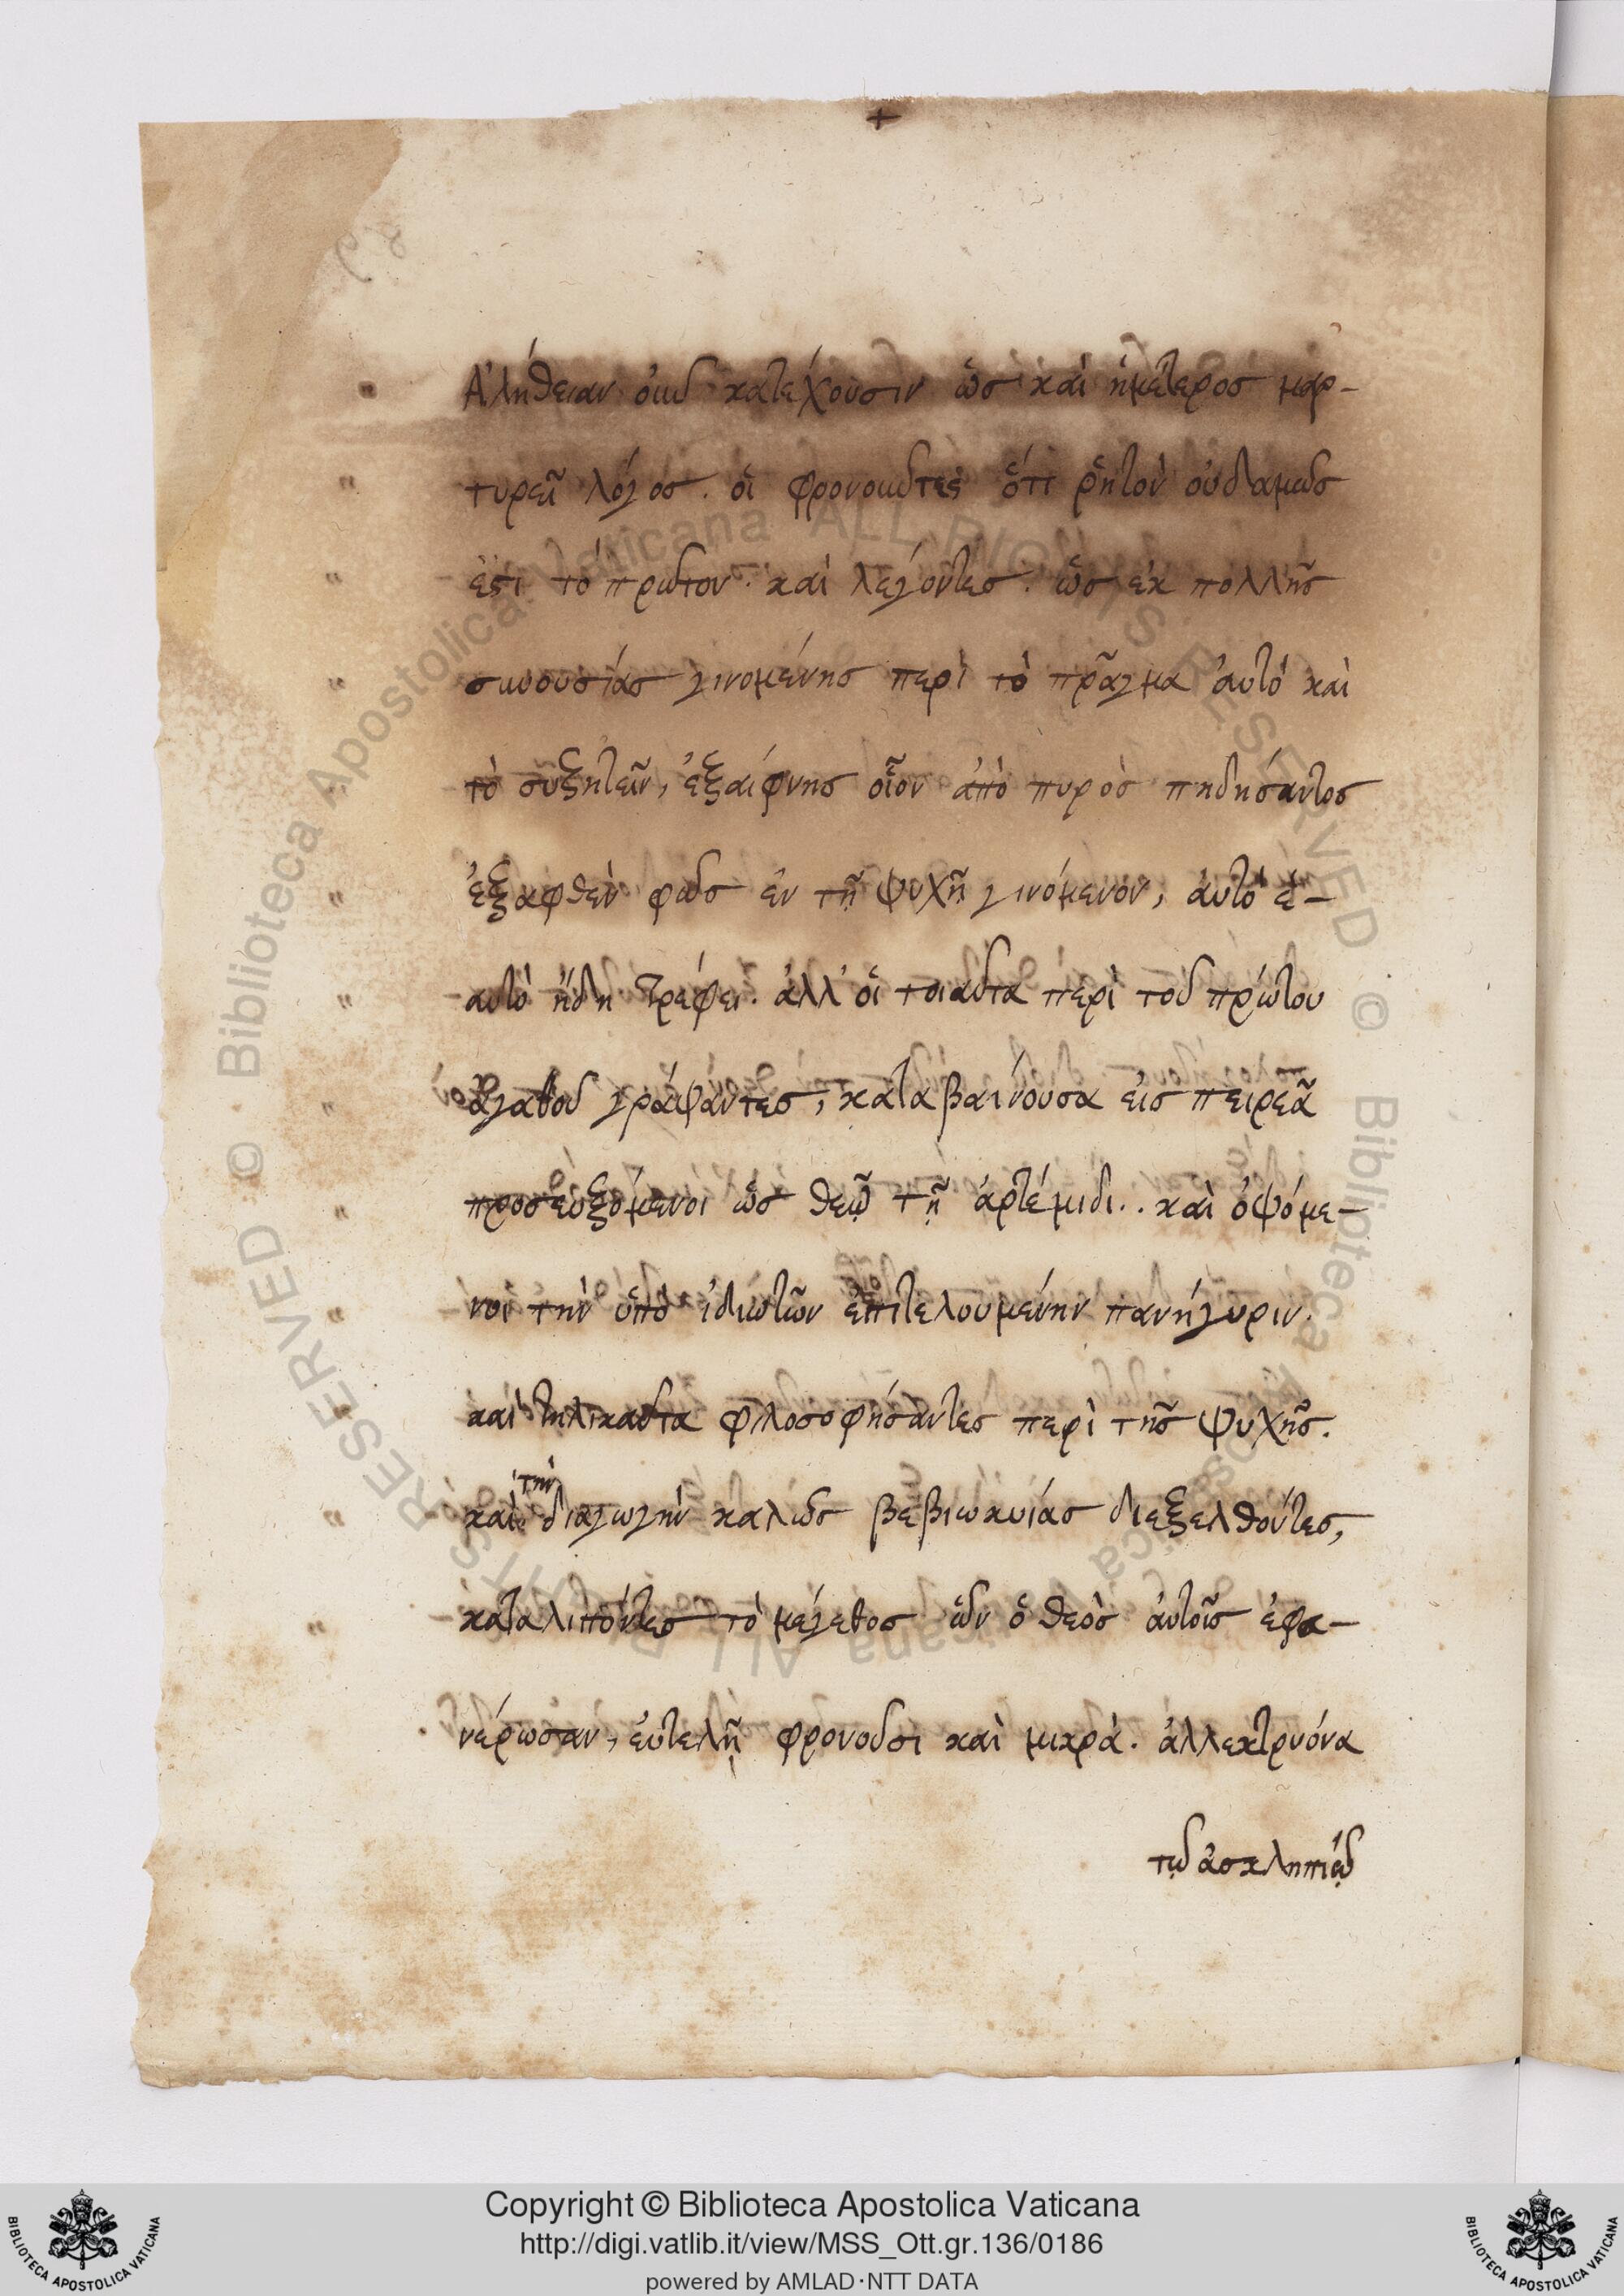 +
Ἀλήθειαν οὖν κατέχουσιν ὥς καὶ ἡμέτερος μαρ-
τυρεῖ λόγος. οἱ φρονοῦντες ὅτι ῥητὸν οὐδαμῶς
ἐστι τὸ πρῶτον. καὶ λέγοντες. ὥς ἐκ πολλῆς
συνουσίας γινομένης περὶ τὸ πρᾶγμα αὐτὸ καὶ
τὸ συξητεῖν, ἐξαίφνης οἷον ἀπὸ πυρὸς πηδήσαντος
ἐξαφθὲν φῶς ἐν τῇ ψυχῇ γινόμενον, αὐτὸ ἑ-
αυτὸ ἤδη τρέφει. ἀλλ' οἱ τοιαῦτα περὶ τοῦ πρώτου
ἀγαθοῦ γράψαντες, καταβαίνουσα εἰς πειρεᾶ
προσευξόμενοι ὥς θεῷ τῇ ἀρτέμιδι.. καὶ ὀψόμε-
νοι τὴν ὑπὸ ἰδιωτῶν ἐπιτελουμένην πανήγυριν.
καὶ τηλικαῦτα φιλοσοφήσαντες περὶ τῆς ψυχῆς.
καὶ τὴν διαγωγὴν καλῶς βεβιωκυίας διεξελθόντες,
καταλιπόντες τὸ μέγεθος ὧν ὁ θεὸς αὐτοῖς ἐφα-
νέρωσαν, εὐτελῆ φρονοῦσι καὶ μικρὰ. ἀλλεκτρυόνα
τῷ ἀσκληπιῷ
© Biblioteca Apostolica Vaticana ALL RIGHTS RESERVED © Biblioteca Apostolica Vaticana ALL RIGHTS RESERVED
Copyright © Biblioteca Apostolica Vaticana
http://digi.vatlib.it/view/MSS_Ott.gr.136/0186
powered by AMLAD·NTT DATA
BIBLIOTECA APOSTOLICA VATICANA
BIBLIOTECA APOSTOLICA VATICANA